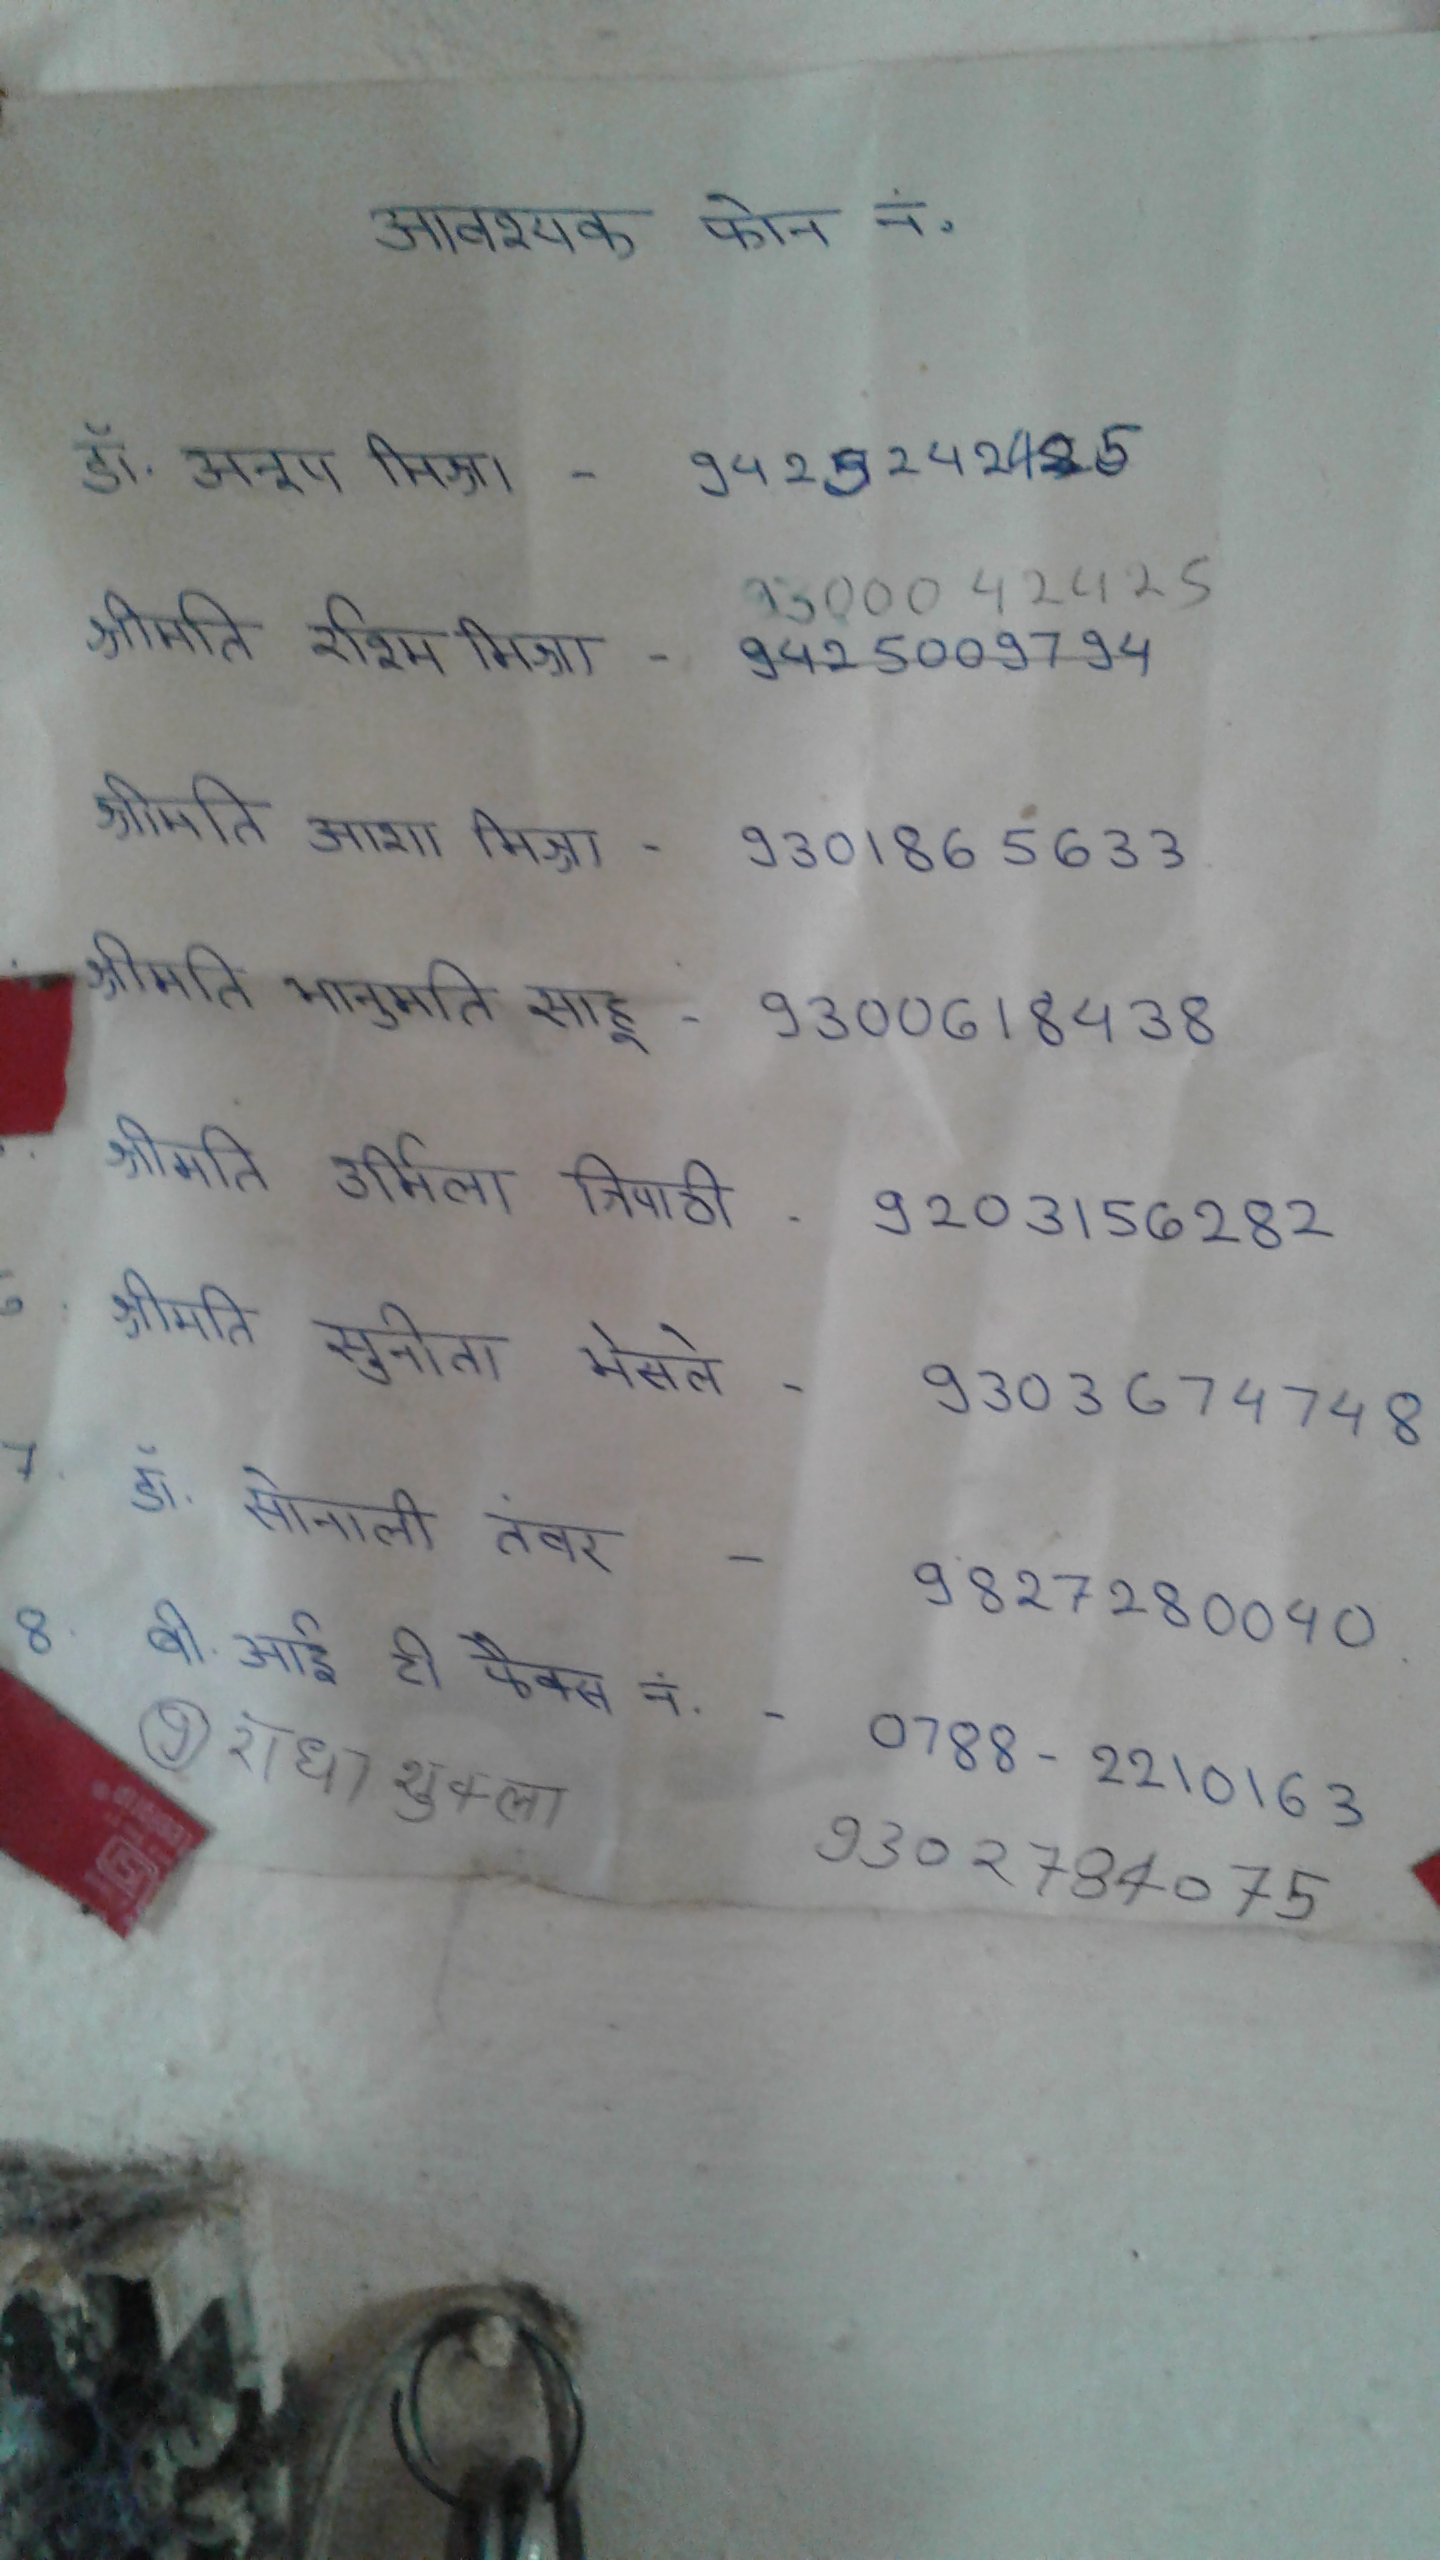 आवश्यक फोन नं.
डॉ. अनूप मिश्रा -
93000 42425
श्रीमति रश्मि मिश्रा - 9425009794
श्रीमति आशा मिश्रा - 9301865633
श्रीमति भानुमति साहू - 9300618438
श्रीमति उर्मिला त्रिपाठी - 9203156282
6. श्रीमति सुनीता भेसले - 9303674748
7. डॉ. सोनाली तंवर - 9827280040
8. बी. आई टी फैक्स नं. - 0788-2210163
9 राधा शुक्ला 9302784075